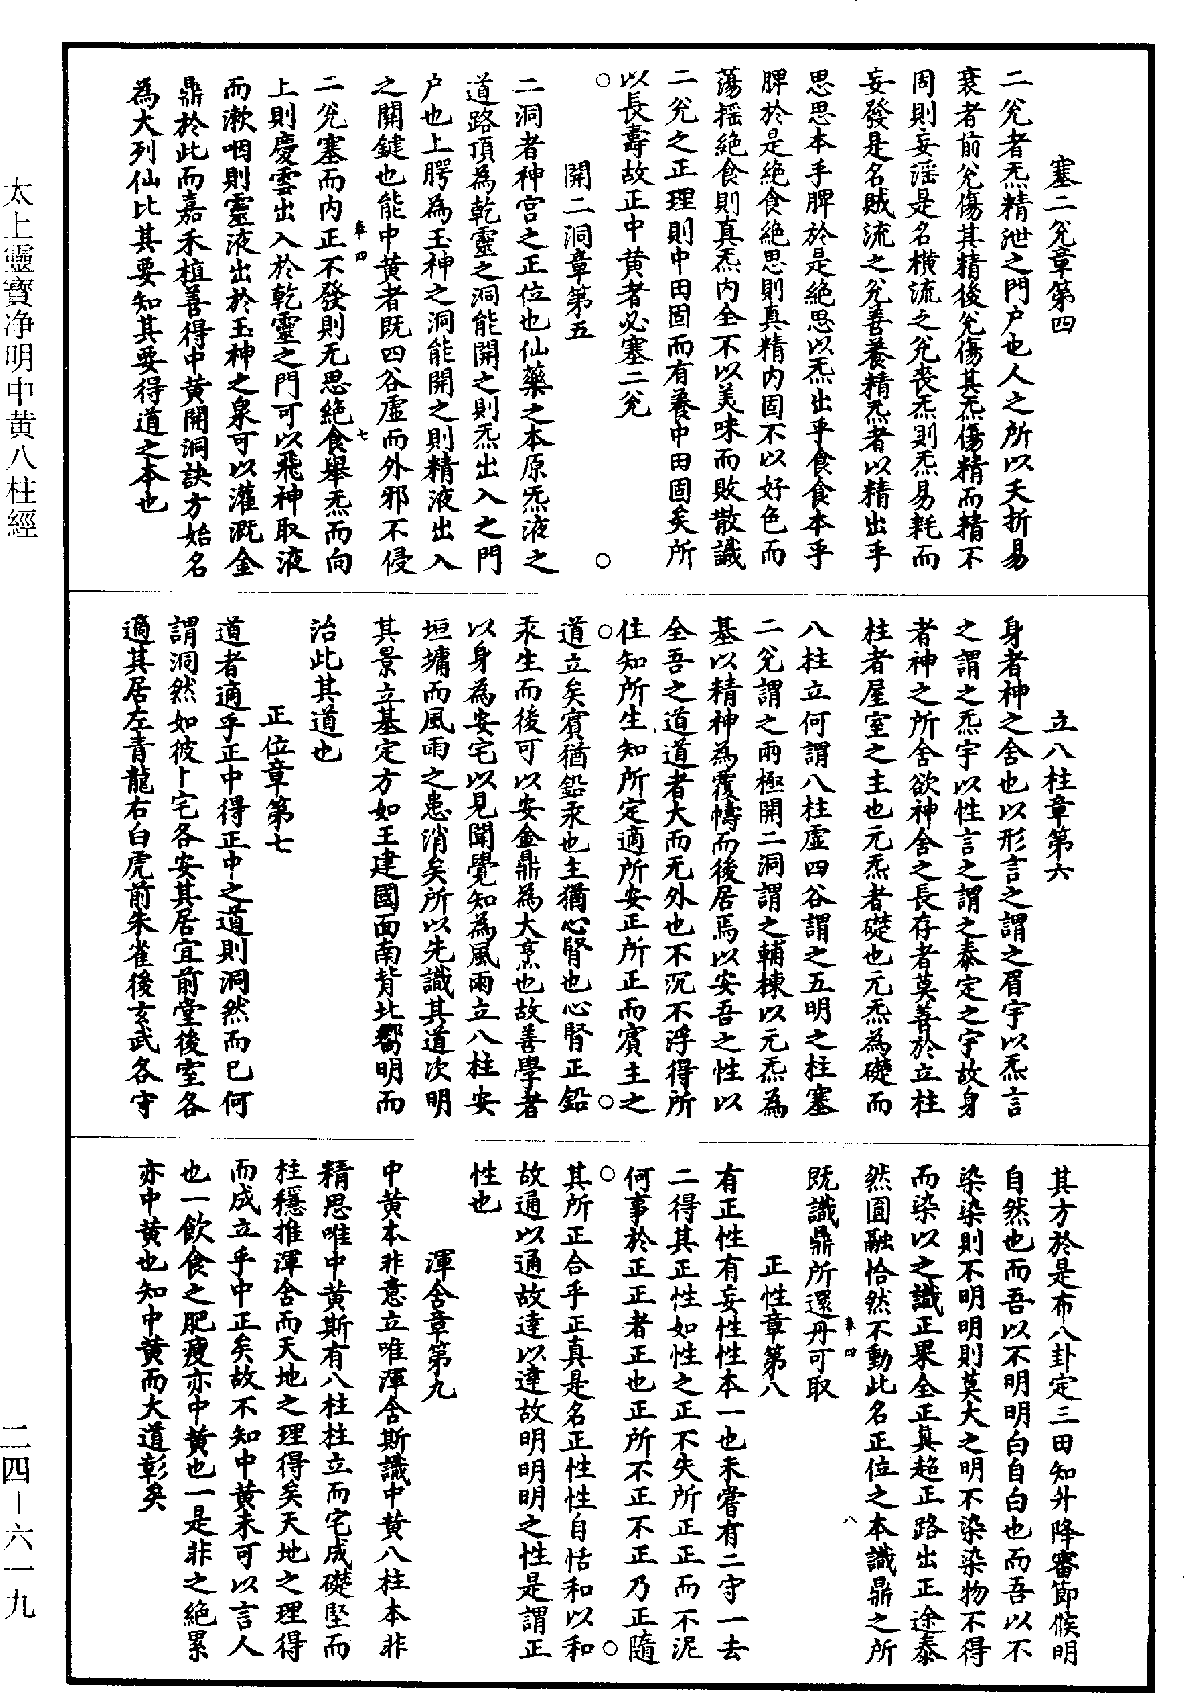 塞二兊章第四
二兊者炁精泄之門户也人之所以夭折易
衰者前兊傷其精後兊傷其炁傷精而精不
周則妄滛是名橫流之兊喪炁則炁易耗而
妄發是名賊流之兊善養精炁者以精出乎
思思本乎脾於是絶思以炁出乎食食本乎
脾於是絶食絶思則真精内固不以好色而
蕩摇絶食則真炁内全不以美味而敗散識
二兊之正理則中田固而有養中田固矣所
以長壽故正中黄者必塞二兊
開二洞章第五
二洞者神宫之正位也仙藥之本原炁液之
道路頂為乾靈之洞能開之則炁出入之門
户也上腭為玉神之洞能開之則精液出入
之關鍵也能中黄者既四谷虛而外邪不侵
二兊塞而内正不發則无思絶食舉炁而向
上則慶雲出入於乾靈之門可以飛神取液
而漱咽則靈液出於玉神之泉可以灌溉金
鼎於此而嘉禾植善得中黄開洞訣方始名
為大列仙比其要知其要得道之本也
立八柱章第六
身者神之舍也以形言之謂之眉宇以炁言
之謂之炁宇以性言之謂之泰定之宇故身
者神之所舍欲神舍之長存者莫善於立柱
柱者屋室之主也元炁者礎也元炁為礎而
八柱立何謂八柱虛四谷謂之五明之柱塞
二兊謂之兩極開二洞謂之輔棟以元炁為
基以精神為覆幬而後居焉以安吾之性以
全吾之道道者大而无外也不沉不浮得所
住知所生知所定適所安正所正而賓主之
道立矣賓猶鉛汞也主猶心腎也心腎正鉛
汞生而後可以安金鼎為大烹也故善學者
以身為安宅以見聞覺知為風雨立八柱安
垣墉而風雨之患消矣所以先識其道次明
其景立基定方如王建國面南背北嚮明而
治此其道也
正位章第七
道者適乎正中得正中之道則洞然而已何
謂洞然如彼卜宅各安其居宜前堂後室各
適其居左青龍右白虎前朱雀後玄武各守
其方於是布八卦定三田知升降審節候明
自然也而吾以不明明白自白也而吾以不
染染則不明明則莫大之明不染染物不得
而染以之識正果全正真超正路出正途泰
然圓融恰然不動此名正位之本識鼎之所
既識鼎所還丹可取
正性章第八
有正性有妄性性本一也未嘗有二守一去
二得其正性如性之正不失所正正而不泥
何事於正正者正也正所不正不正乃正隨
其所正合乎正真是名正性性自恬和以和
故通以通故達以達故明明明之性是謂正
性也
渾舍章第九
中黄本非意立唯渾舍斯識中黄八柱本非
精思唯中黄斯有八柱柱立而宅成礎堅而
柱穩推渾舍而天地之理得矣天地之理得
而成立乎中正矣故不知中黄未可以言人
也一飲食之肥瘦亦中黄也一是非之絶累
亦中黄也知中黄而大道彰矣
太上靈寶净明中黄八柱經
二四—六一九